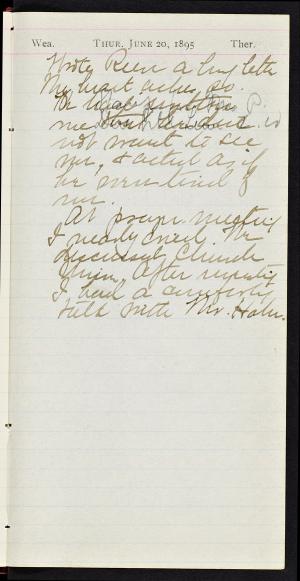 Wea. THUR. JUNE 20, 1895 Ther.
Wrote Reen a long letter
My heart aches so.
He
me that he did
not want to see
me, & acted as if
he were tired of
me.
At prayer meeting
I nearly cried. We
discussed Church
Union. After meeting
I had a comforting
talk with Mr.